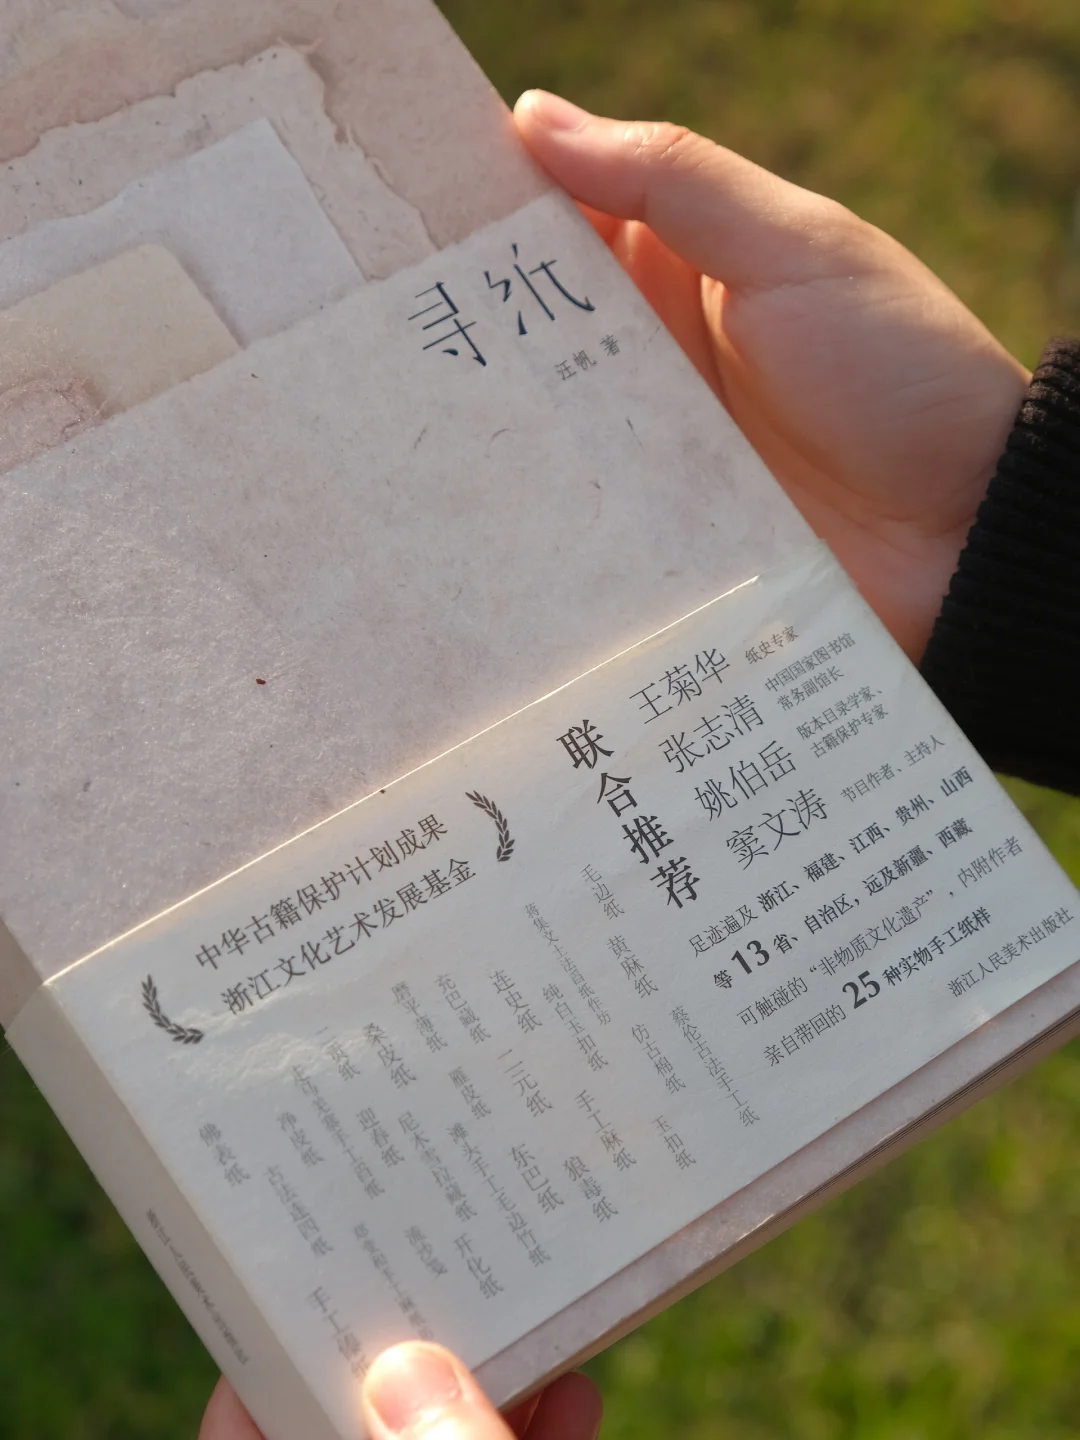 寻纸
汪帆 著
中华古籍保护计划成果
浙江文化艺术发展基金
联合推荐
王菊华 纸史专家
张志清 中国国家图书馆
常务副馆长
姚伯岳 版本目录学家、
古籍保护专家
窦文涛 节目作者、主持人
足迹遍及 浙江、福建、江西、贵州、山西
等13省、自治区，远及新疆、西藏
可触碰的“非物质文化遗产”，内附作者
亲自带回的 25 种实物手工纸样
浙江人民美术出版社
毛边纸
黄麻纸
蔡伦古法手工纸
纯白玉扣纸
仿古棉纸
玉扣纸
连史纸
二元纸
手工麻纸
充巴藏纸
雁皮纸
东巴纸
狼毒纸
磨平薄纸
桑皮纸
尼木雪拉藏纸
滩头手工毛边竹纸
二贡纸
迎春纸
流沙笺
开化纸
净皮纸
古法连四纸
佛表纸
浙江人民美术出版社